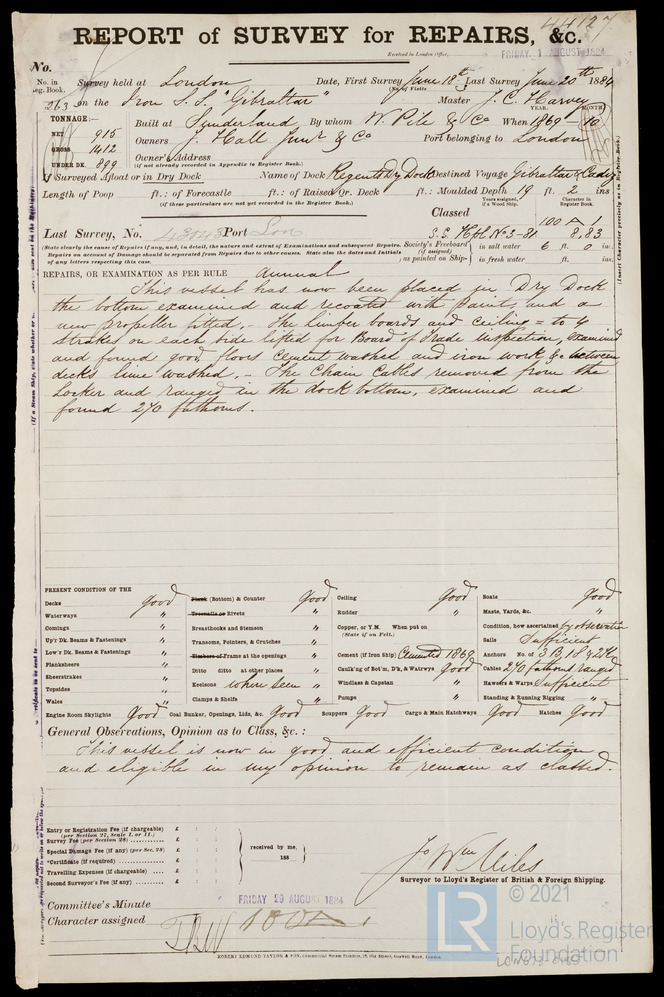 44127
REPORT of SURVEY for REPAIRS, &c.
Received in London Office,
FRIDAY. 1 AUGUST 1884
No.
No. in Reg. Book. Survey held at London Date, First Survey June 18th Last Survey June 20th 1884
(No. of Visits
263 on the Iron S.S. "Gibraltar" Master J. C. Harvey
YEAR. MONTH
TONNAGE:—
NET 915
GROSS 1412
UNDER DK. 899
Built at Sunderland By whom W. Pile & Co When 1869 – 10
Owners J. Hall Junr & Co Port belonging to London
Owner's Address
(if not already recorded in Appendix to Register Book.)
If Surveyed Afloat or in Dry Dock Name of Dock Regents Dry Dock Destined Voyage Gibraltar & Cadiz
Length of Poop ft.: of Forecastle ft.: of Raised Qr. Deck ft.: Moulded Depth 19 ft. 2 ins
(if these particulars are not yet recorded in the Register Book.)
Years assigned, if a Wood Ship.
Character in Register Book.
Classed 100 A 1
Last Survey, No. Port Lon S.S. Hpl No 3-81 8,83
(State clearly the cause of Repairs if any, and, in detail, the nature and extent of Examinations and subsequent Repairs.
Repairs on account of Damage should be separated from Repairs due to other causes. State also the dates and Initials
of any letters respecting this case.)
Society's Freeboard (if assigned) as painted on Ship:- in salt water 6 ft. 0 in.
in fresh water ft. in.
REPAIRS, OR EXAMINATION AS PER RULE annual
This vessel has now been placed in Dry Dock
the bottom examined and recoated with Paint, and a
new propeller fitted. – The limber boards and ceiling = to 4
strakes on each side lifted for Board of Trade inspection, examined
and found good, floors cement washed and iron work &c between
decks lime washed. – The Chain Cables removed from the
Locker and ranged in the dock bottom, examined and
found 270 fathoms.
PRESENT CONDITION OF THE
Decks Good
Waterways "
Comings "
Up'r Dk. Beams & Fastenings "
Low'r Dk. Beams & Fastenings "
Planksheers "
Sheerstrakes "
Topsides "
Wales "
Plank (Bottom) & Counter Good
Treenails or Rivets "
Breasthooks and Stemson "
Transoms, Pointers, & Crutches "
Timbers of Frame at the openings "
Ditto ditto at other places "
Keelsons where seen "
Clamps & Shelfs "
Ceiling Good
Rudder "
Copper, or Y.M. When put on
(State if on Felt.)
Cement (if Iron Ship) Cemented 1869
Caulk'ng of Bot'm, D'k, & Watrwys Good
Windlass & Capstan "
Pumps "
Boats Good
Masts, Yards, &c. "
Condition, how ascertained by observation
Sails Sufficient
Anchors No. of 3 B, 1 S & 2 K
Cables 270 fathoms ranged
Hawsers & Warps Sufficient
Standing & Running Rigging "
Engine Room Skylights Good Coal Bunker, Openings, Lids, &c. Good Scuppers Good Cargo & Main Hatchways Good Hatches Good
General Observations, Opinion as to Class, &c. :
This vessel is now in good and efficient condition
and eligible in my opinion to remain as classed.
Entry or Registration Fee (if chargeable) £
(per Section 27, Scale I. or II.)
Survey Fee (per Section 28) £
Special Damage Fee (if any) (per Sec. 28) £
*Certificate (if required) £
Travelling Expenses (if chargeable) £
Second Surveyor's Fee (if any) £
received by me,
188
Jo Wm Miles
Surveyor to Lloyd's Register of British & Foreign Shipping.
Committee's Minute FRIDAY 29 AUGUST 1884
Character assigned 100 A 1
ROBERT EDMUND TAYLOR & SON, Commercial Steam Printers, 19, Old Street, Goswell Road, London.
LR
© 2021
Lloyd's Register
Foundation